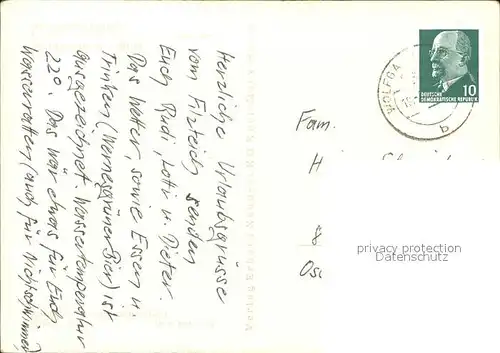 Herzliche Urlaubsgrüsse
vom Filzteich senden
Euch Rudi, Lotti u. Dieter.
Das Wetter, sowie Essen u.
Trinken (Wernesgrüner Bier) ist
ausgezeichnet. Wassertemperatur
22°. Das wär etwas für Euch
Wasserratten (auch für Nichtschwimmer)
DEUTSCHE
DEMOKRATISCHE REPUBLIK
10
WOLFGA
b
Fam.
privacy protection
Datenschutz